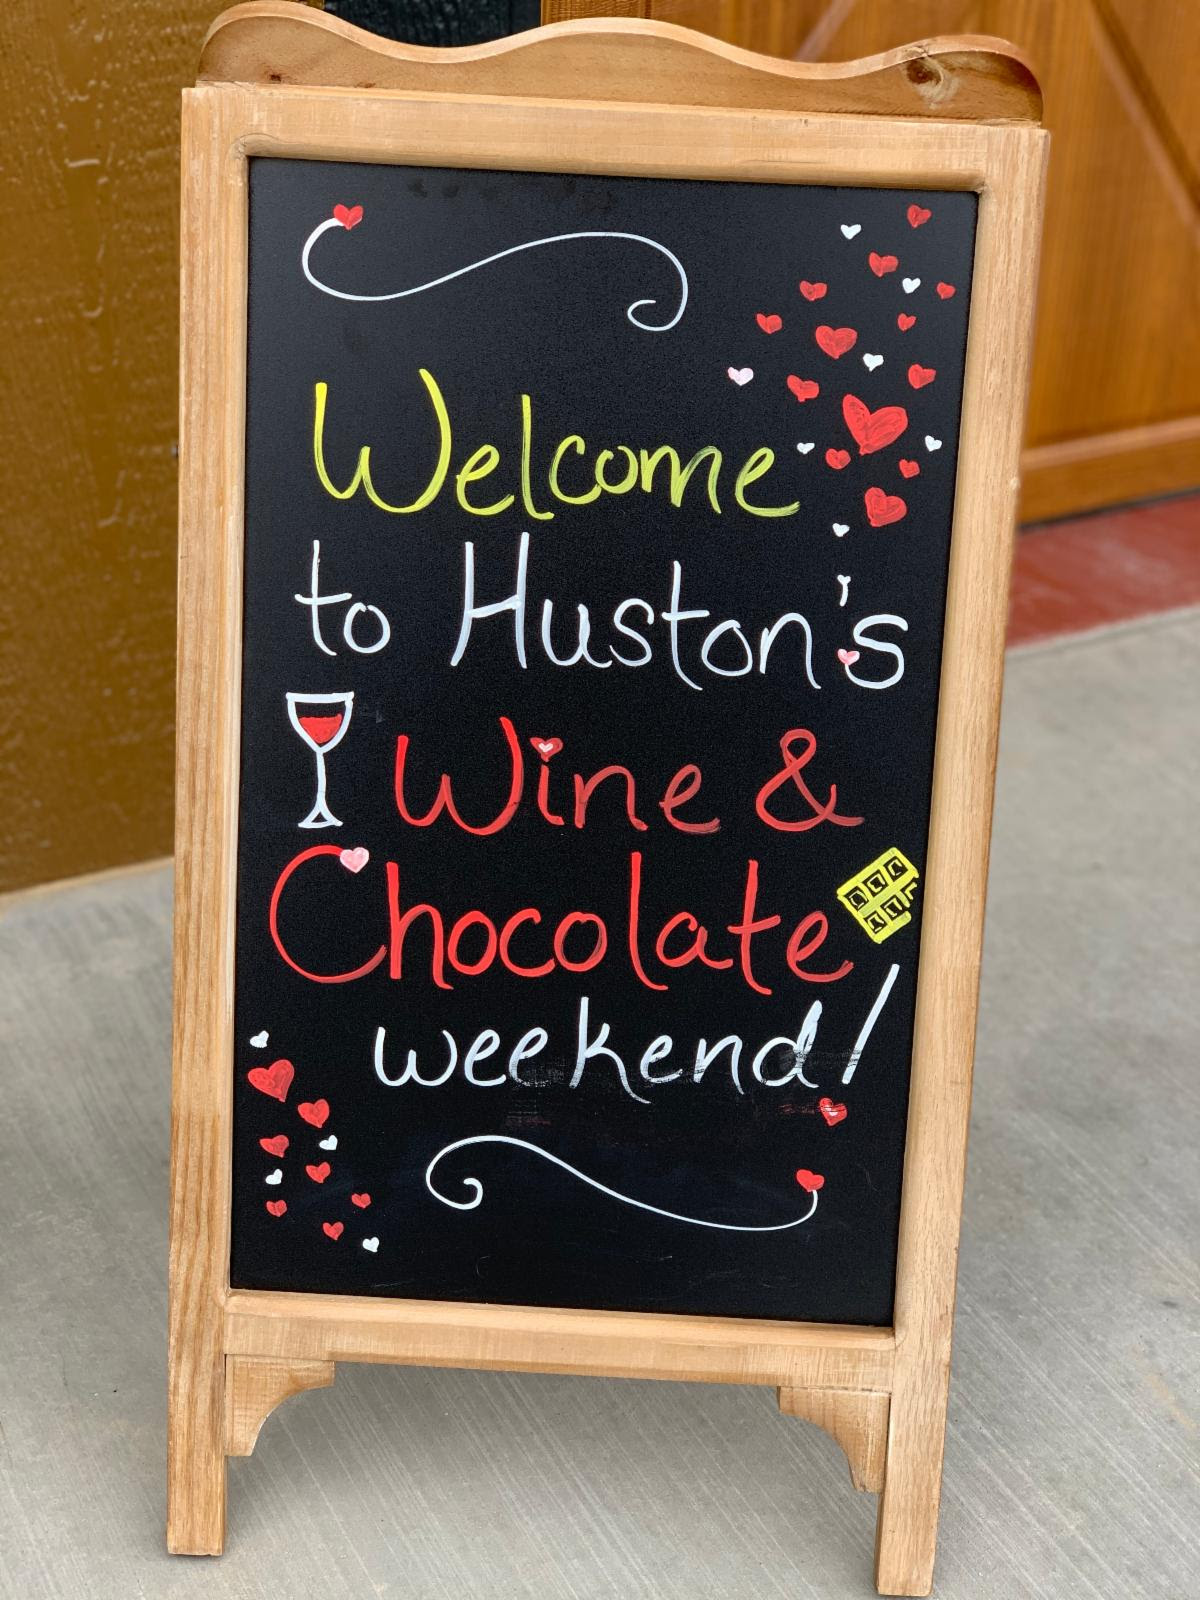 Welcome
to Huston's
Wine &
Chocolate
weekend!